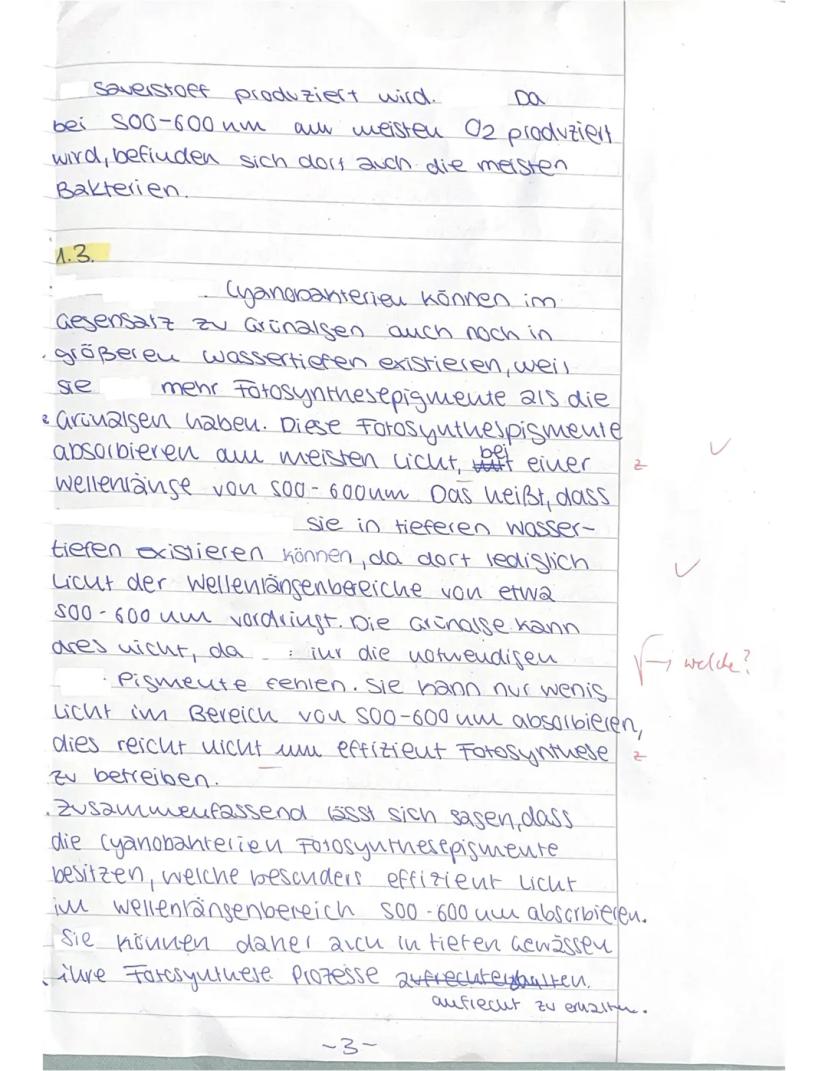 Sauerstoff produziert wird. Da
bei 500-600 nm am meisten O2 produziert
wird, befinden sich dort auch die meisten
Bakterien.
1.3.
Cyanobakterien können im
Gegensatz zu Grünalgen auch noch in
größeren Wassertiefen existieren, weil
sie mehr Fotosynthesepigmente als die
Grünalgen haben. Diese Fotosynthespigmente
absorbieren am meisten Licht, bei einer z ✓
Wellenlänge von 500-600nm Das heißt, dass
sie in tieferen Wasser-
tiefen existieren können, da dort lediglich
Licht der Wellenlängenbereiche von etwa ✓
500-600 nm vordringt. Die Grünalge kann
dies nicht, da ihr die notwendigen √→ welche?
Pigmente fehlen. Sie kann nur wenig
Licht im Bereich von 500-600 nm absorbieren,
dies reicht nicht um effizient Fotosynthese z
zu betreiben.
Zusammenfassend lässt sich sagen, dass
die Cyanobakterien Fotosynthesepigmente
besitzen, welche besonders effizient Licht
im Wellenlängenbereich 500-600 nm absorbieren.
Sie können daher auch in tiefen Gewässen
ihre Fotosynthese Prozesse aufrechterhalten.
aufrecht zu erhalten.
-3-